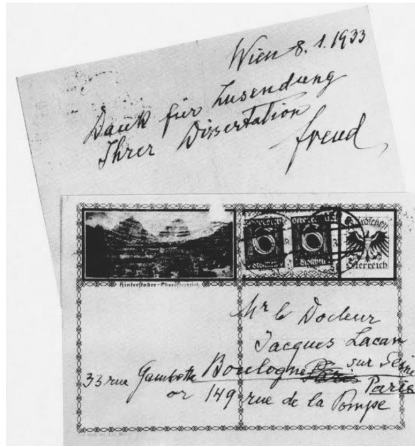 Wien 8. 1. 1933
Dank für Zusendung
Ihrer Dissertation
freud
Hinterstoder-Oberösterreich
Österreich
Mr le Docteur
Jacques Lacan
33 rue Gambetta Boulogne Paris sur Seine
or 149 rue de la Pompe Paris